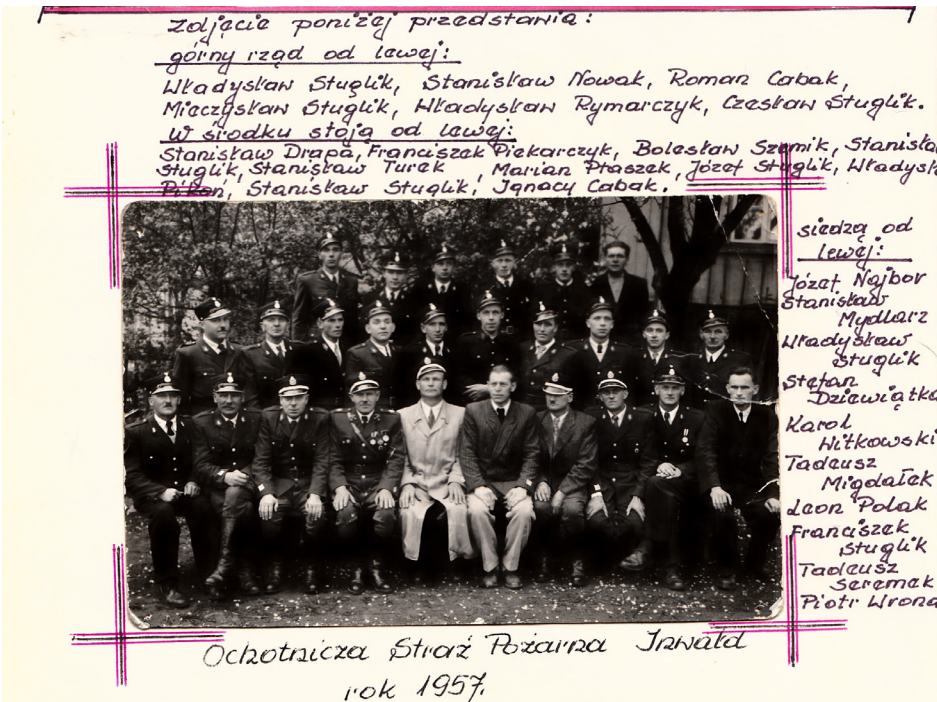 Zdjęcie poniżej przedstawia:
górny rząd od lewej:
Władysław Stuglik, Stanisław Nowak, Roman Cabak,
Mieczysław Stuglik, Władysław Rymarczyk, Czesław Stuglik.
W środku stoją od lewej:
Stanisław Drapa, Franciszek Piekarczyk, Bolesław Szemik, Stanisła
Stuglik, Stanisław Turek, Marian Ptaszek, Józef Stuglik, Władysł
Stanisław Stuglik, Ignacy Cabak.
siedzą od
lewej:
Józef Najbor
Stanisław
Mydlarz
Władysław
Stuglik
Stefan
Dziewiątko
Karol
Witkowski
Tadeusz
Migdałek
Leon Polak
Franciszek
Stuglik
Tadeusz
Seremak
Piotr Wrona
Ochotnicza Straż Pożarna Inwałd
rok 1957.